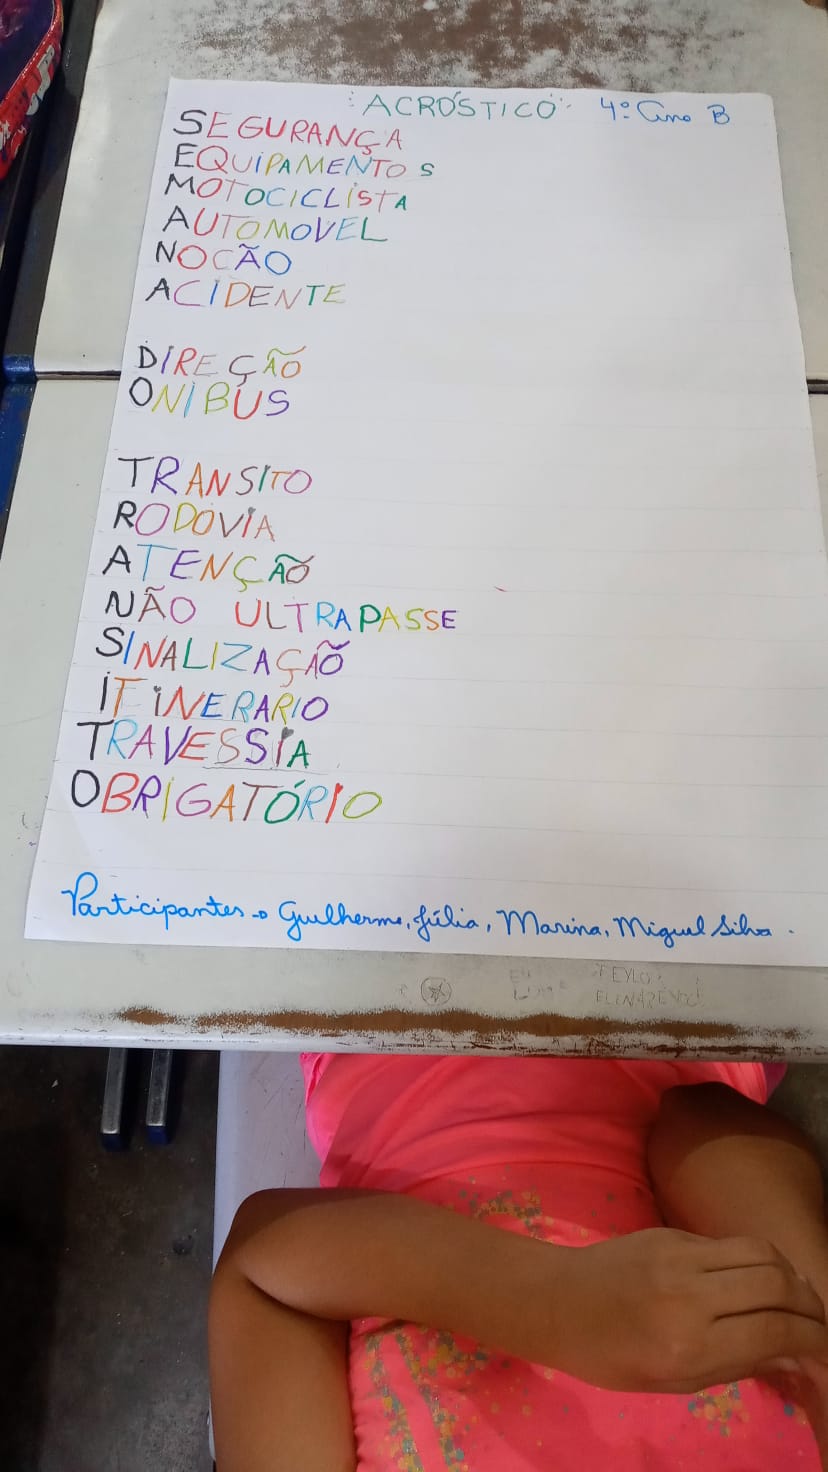 ACRÓSTICO 4º Ano B
SEGURANÇA
EQUIPAMENTOS
MOTOCICLISTA
AUTOMOVEL
NOCÃO
ACIDENTE
DIREÇÃO
ONIBUS
TRANSITO
RODOVIA
ATENÇÃO
NÃO ULTRAPASSE
SINALIZAÇÃO
ITINERARIO
TRAVESSIA
OBRIGATÓRIO
Participantes → Guilherme, Júlia, Marina, Miguel Silva.